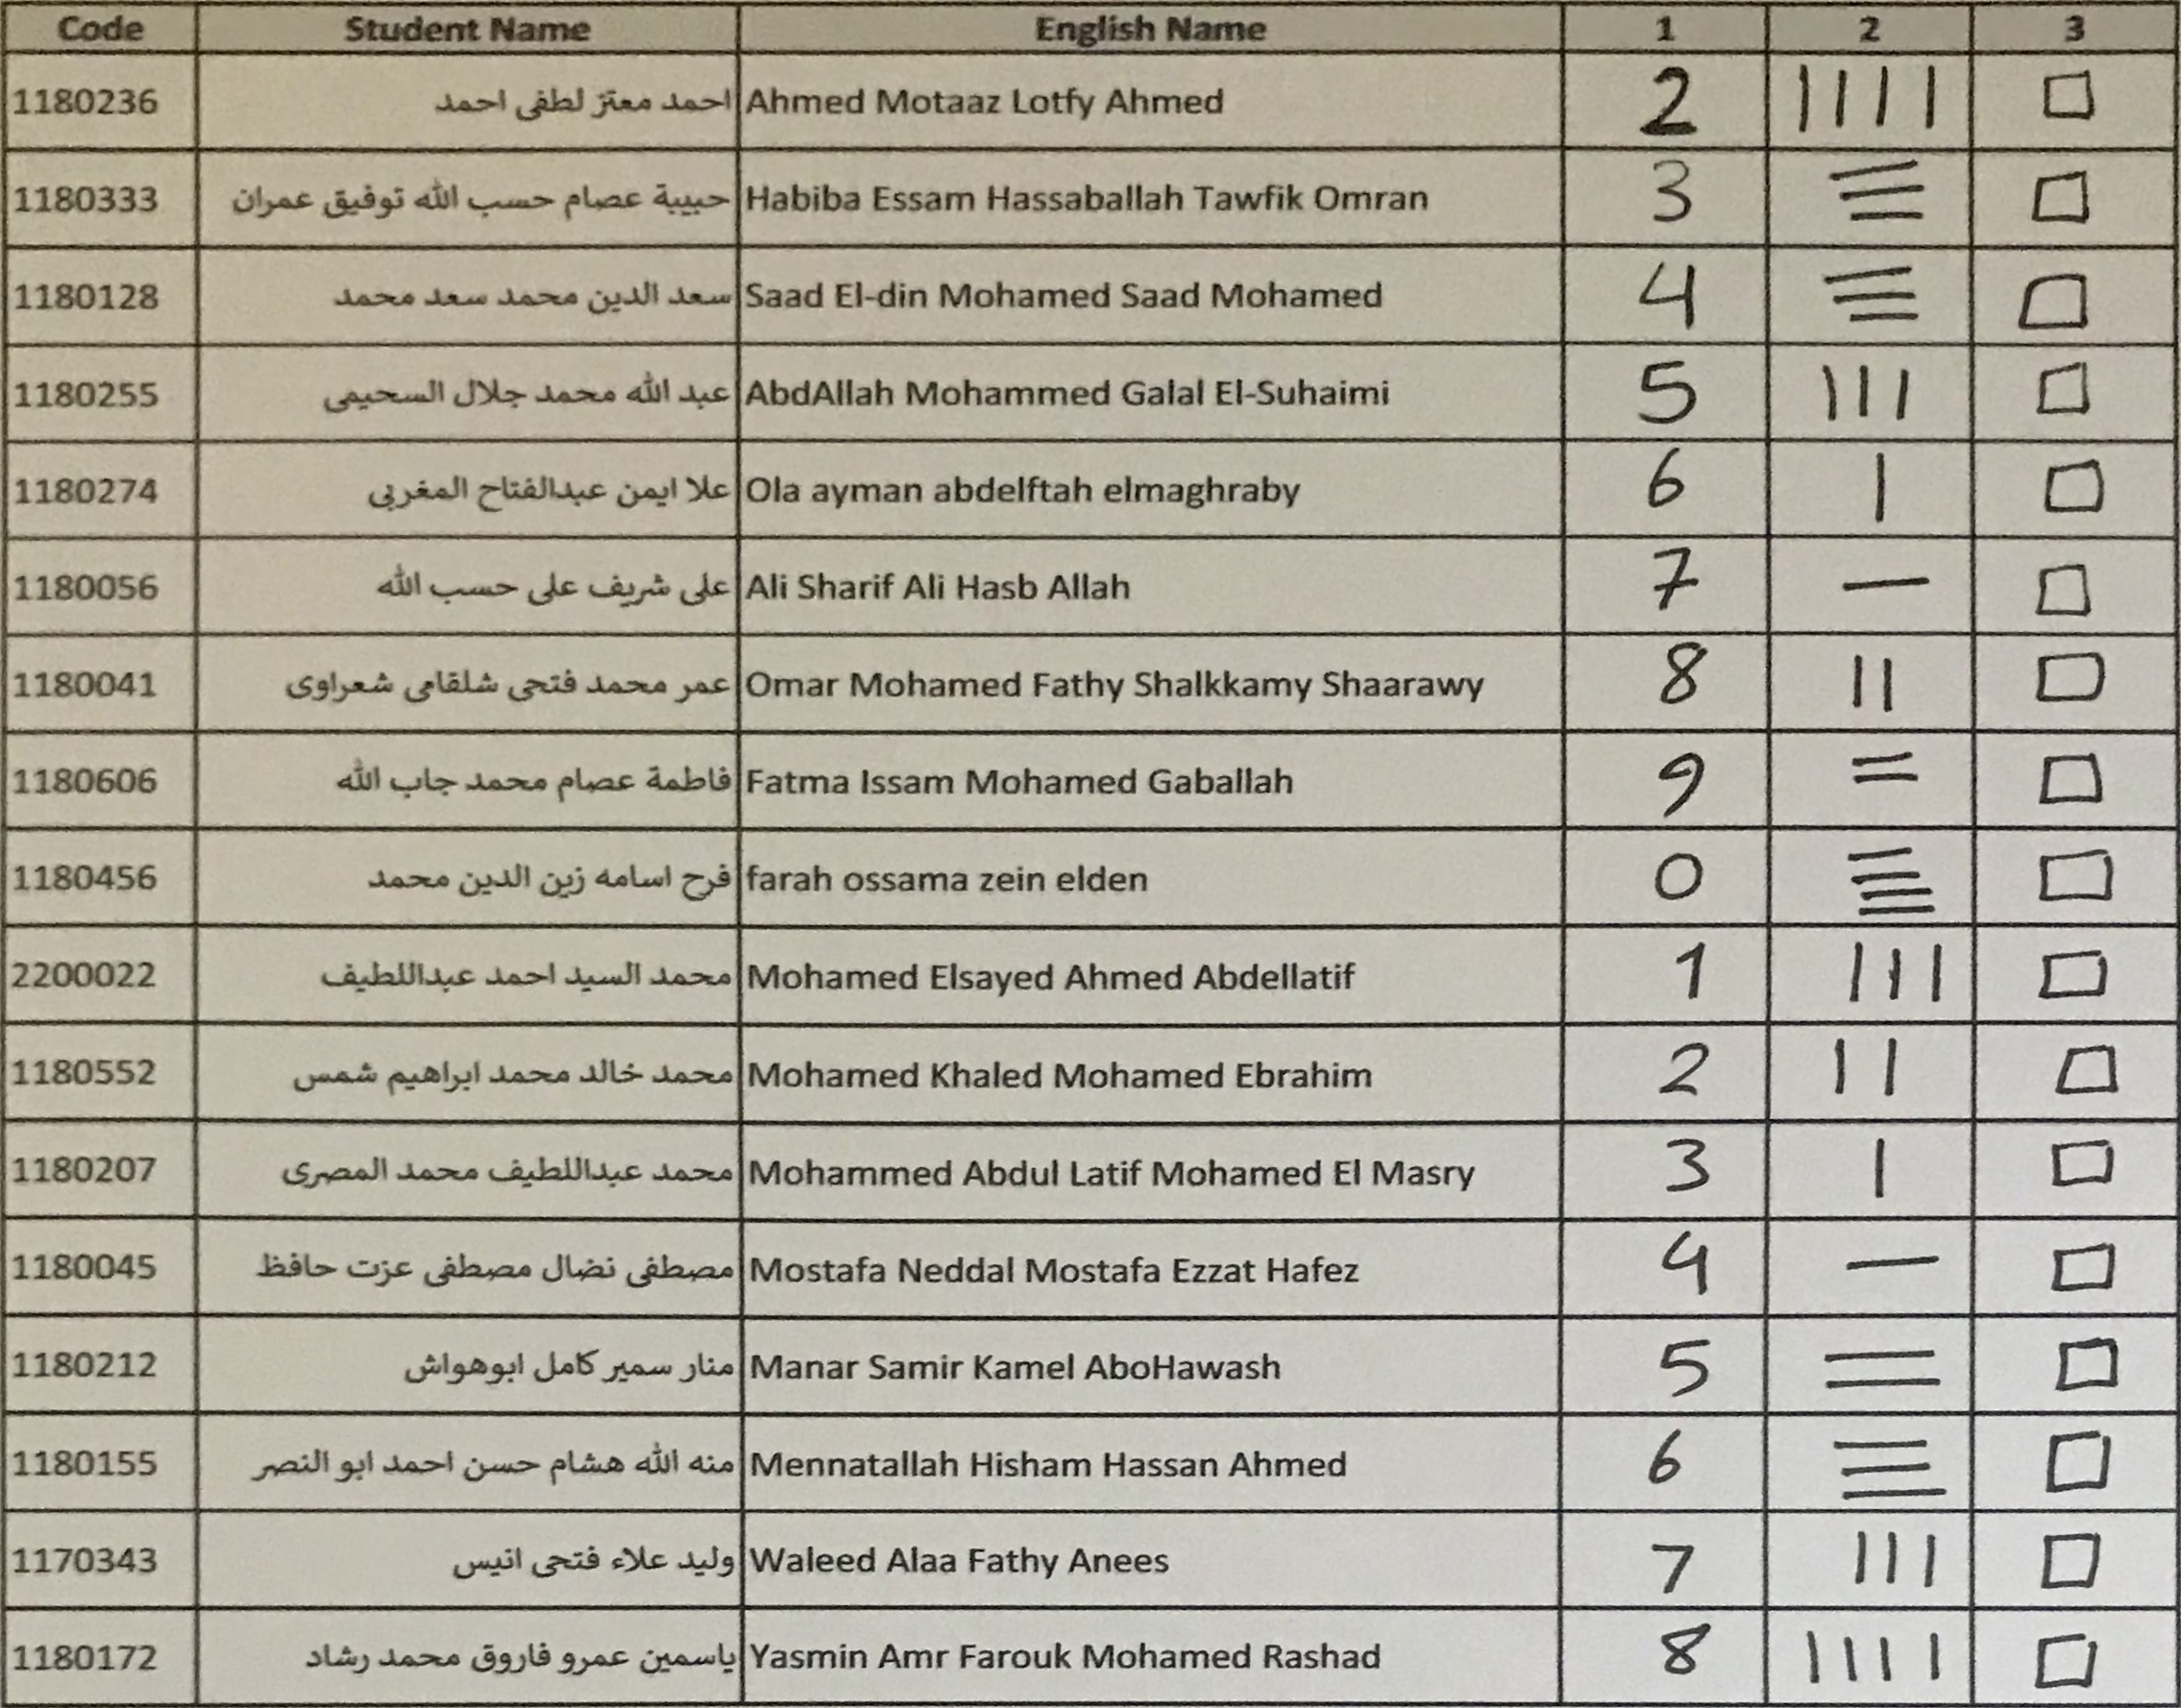 Code Student Name English Name 1 2 3
1180236 احمد معتز لطفى احمد Ahmed Motaaz Lotfy Ahmed 2 | | | | □
1180333 حبيبة عصام حسب الله توفيق عمران Habiba Essam Hassaballah Tawfik Omran 3 ☰ □
1180128 سعد الدين محمد سعد محمد Saad El-din Mohamed Saad Mohamed 4 ☰ □
1180255 عبد الله محمد جلال السحيمى AbdAllah Mohammed Galal El-Suhaimi 5 | | | □
1180274 علا ايمن عبدالفتاح المغربى Ola ayman abdelftah elmaghraby 6 | □
1180056 على شريف على حسب الله Ali Sharif Ali Hasb Allah 7 — □
1180041 عمر محمد فتحى شلقامى شعراوى Omar Mohamed Fathy Shalkkamy Shaarawy 8 | | □
1180606 فاطمة عصام محمد جاب الله Fatma Issam Mohamed Gaballah 9 = □
1180456 فرح اسامه زين الدين محمد farah ossama zein elden 0 𝍬 □
2200022 محمد السيد احمد عبداللطيف Mohamed Elsayed Ahmed Abdellatif 1 | | | □
1180552 محمد خالد محمد ابراهيم شمس Mohamed Khaled Mohamed Ebrahim 2 | | □
1180207 محمد عبداللطيف محمد المصرى Mohammed Abdul Latif Mohamed El Masry 3 | □
1180045 مصطفى نضال مصطفى عزت حافظ Mostafa Neddal Mostafa Ezzat Hafez 4 — □
1180212 منار سمير كامل ابوهواش Manar Samir Kamel AboHawash 5 = □
1180155 منه الله هشام حسن احمد ابو النصر Mennatallah Hisham Hassan Ahmed 6 ☰ □
1170343 وليد علاء فتحى انيس Waleed Alaa Fathy Anees 7 | | | □
1180172 ياسمين عمرو فاروق محمد رشاد Yasmin Amr Farouk Mohamed Rashad 8 | | | | □